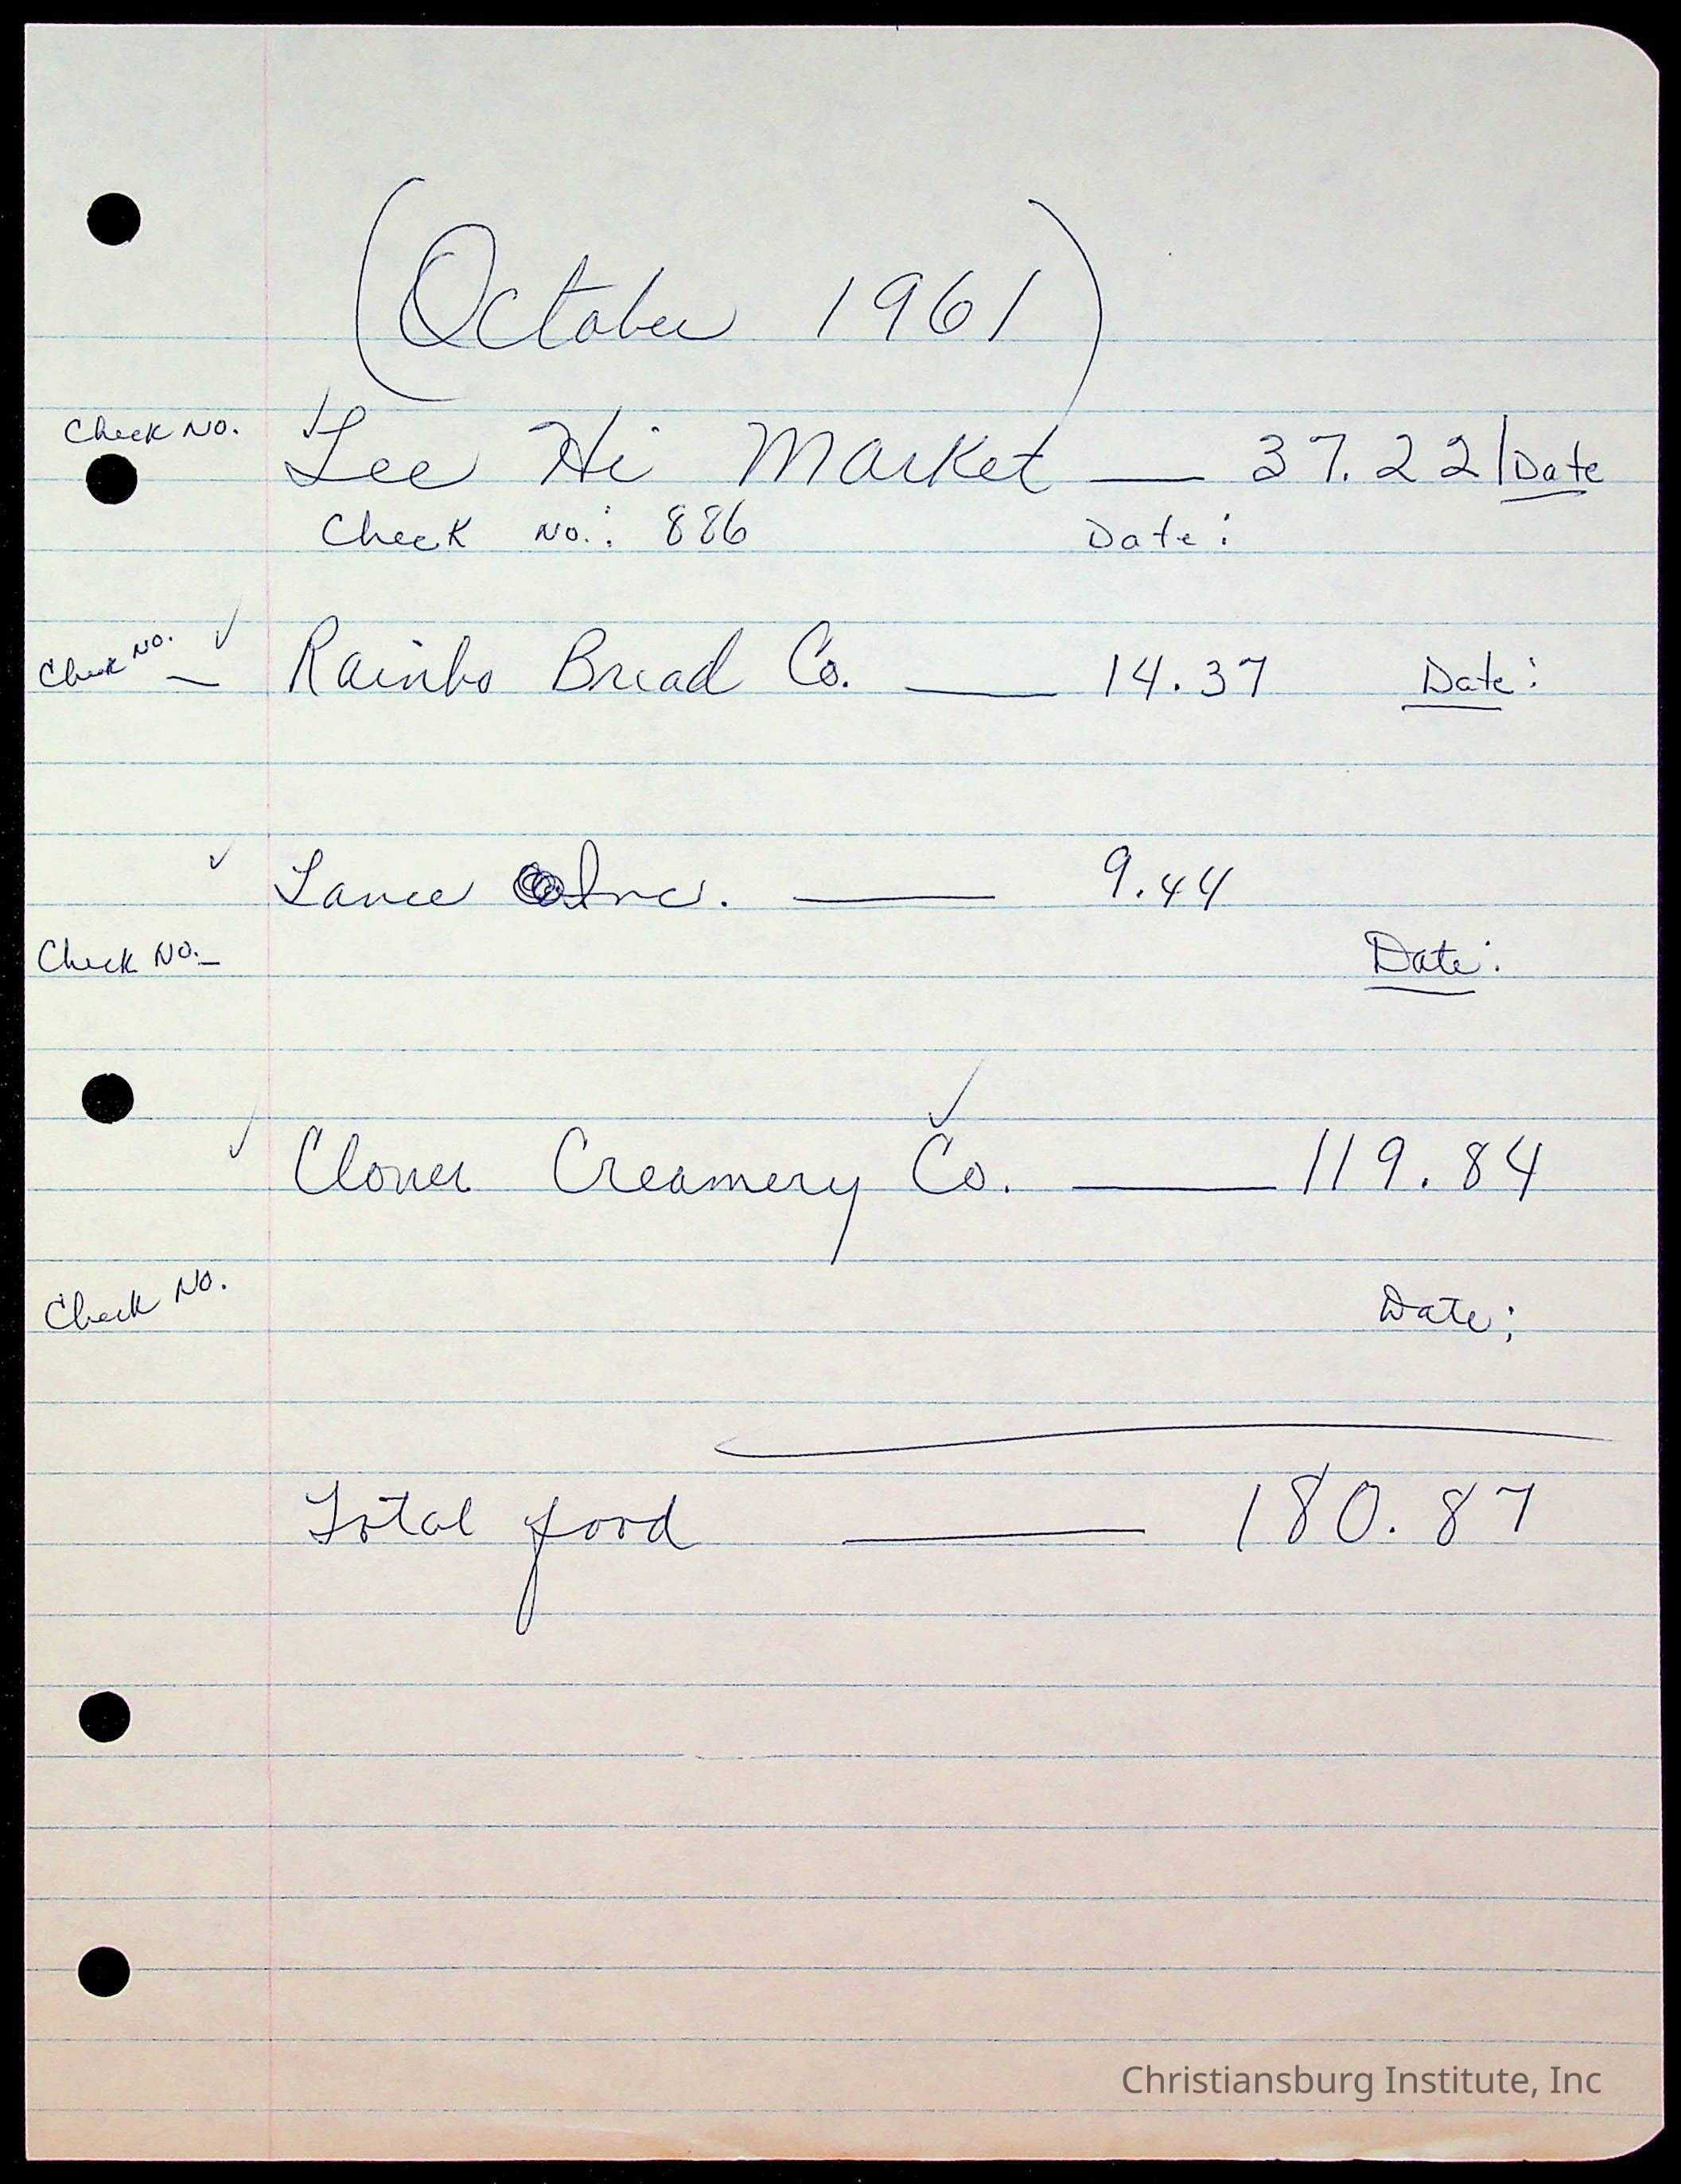 (October 1961)
Check No. ✓ Lee Hi Market — 37.22 | Date
Check No.: 886 Date:
Check No. — ✓ Rainbo Bread Co. — 14.37 Date:
✓ Lance Inc. — 9.44
Check No. — Date:
✓ Clover Creamery Co. ✓ — 119.84
Check No. Date:
Total food — 180.87
Christiansburg Institute, Inc